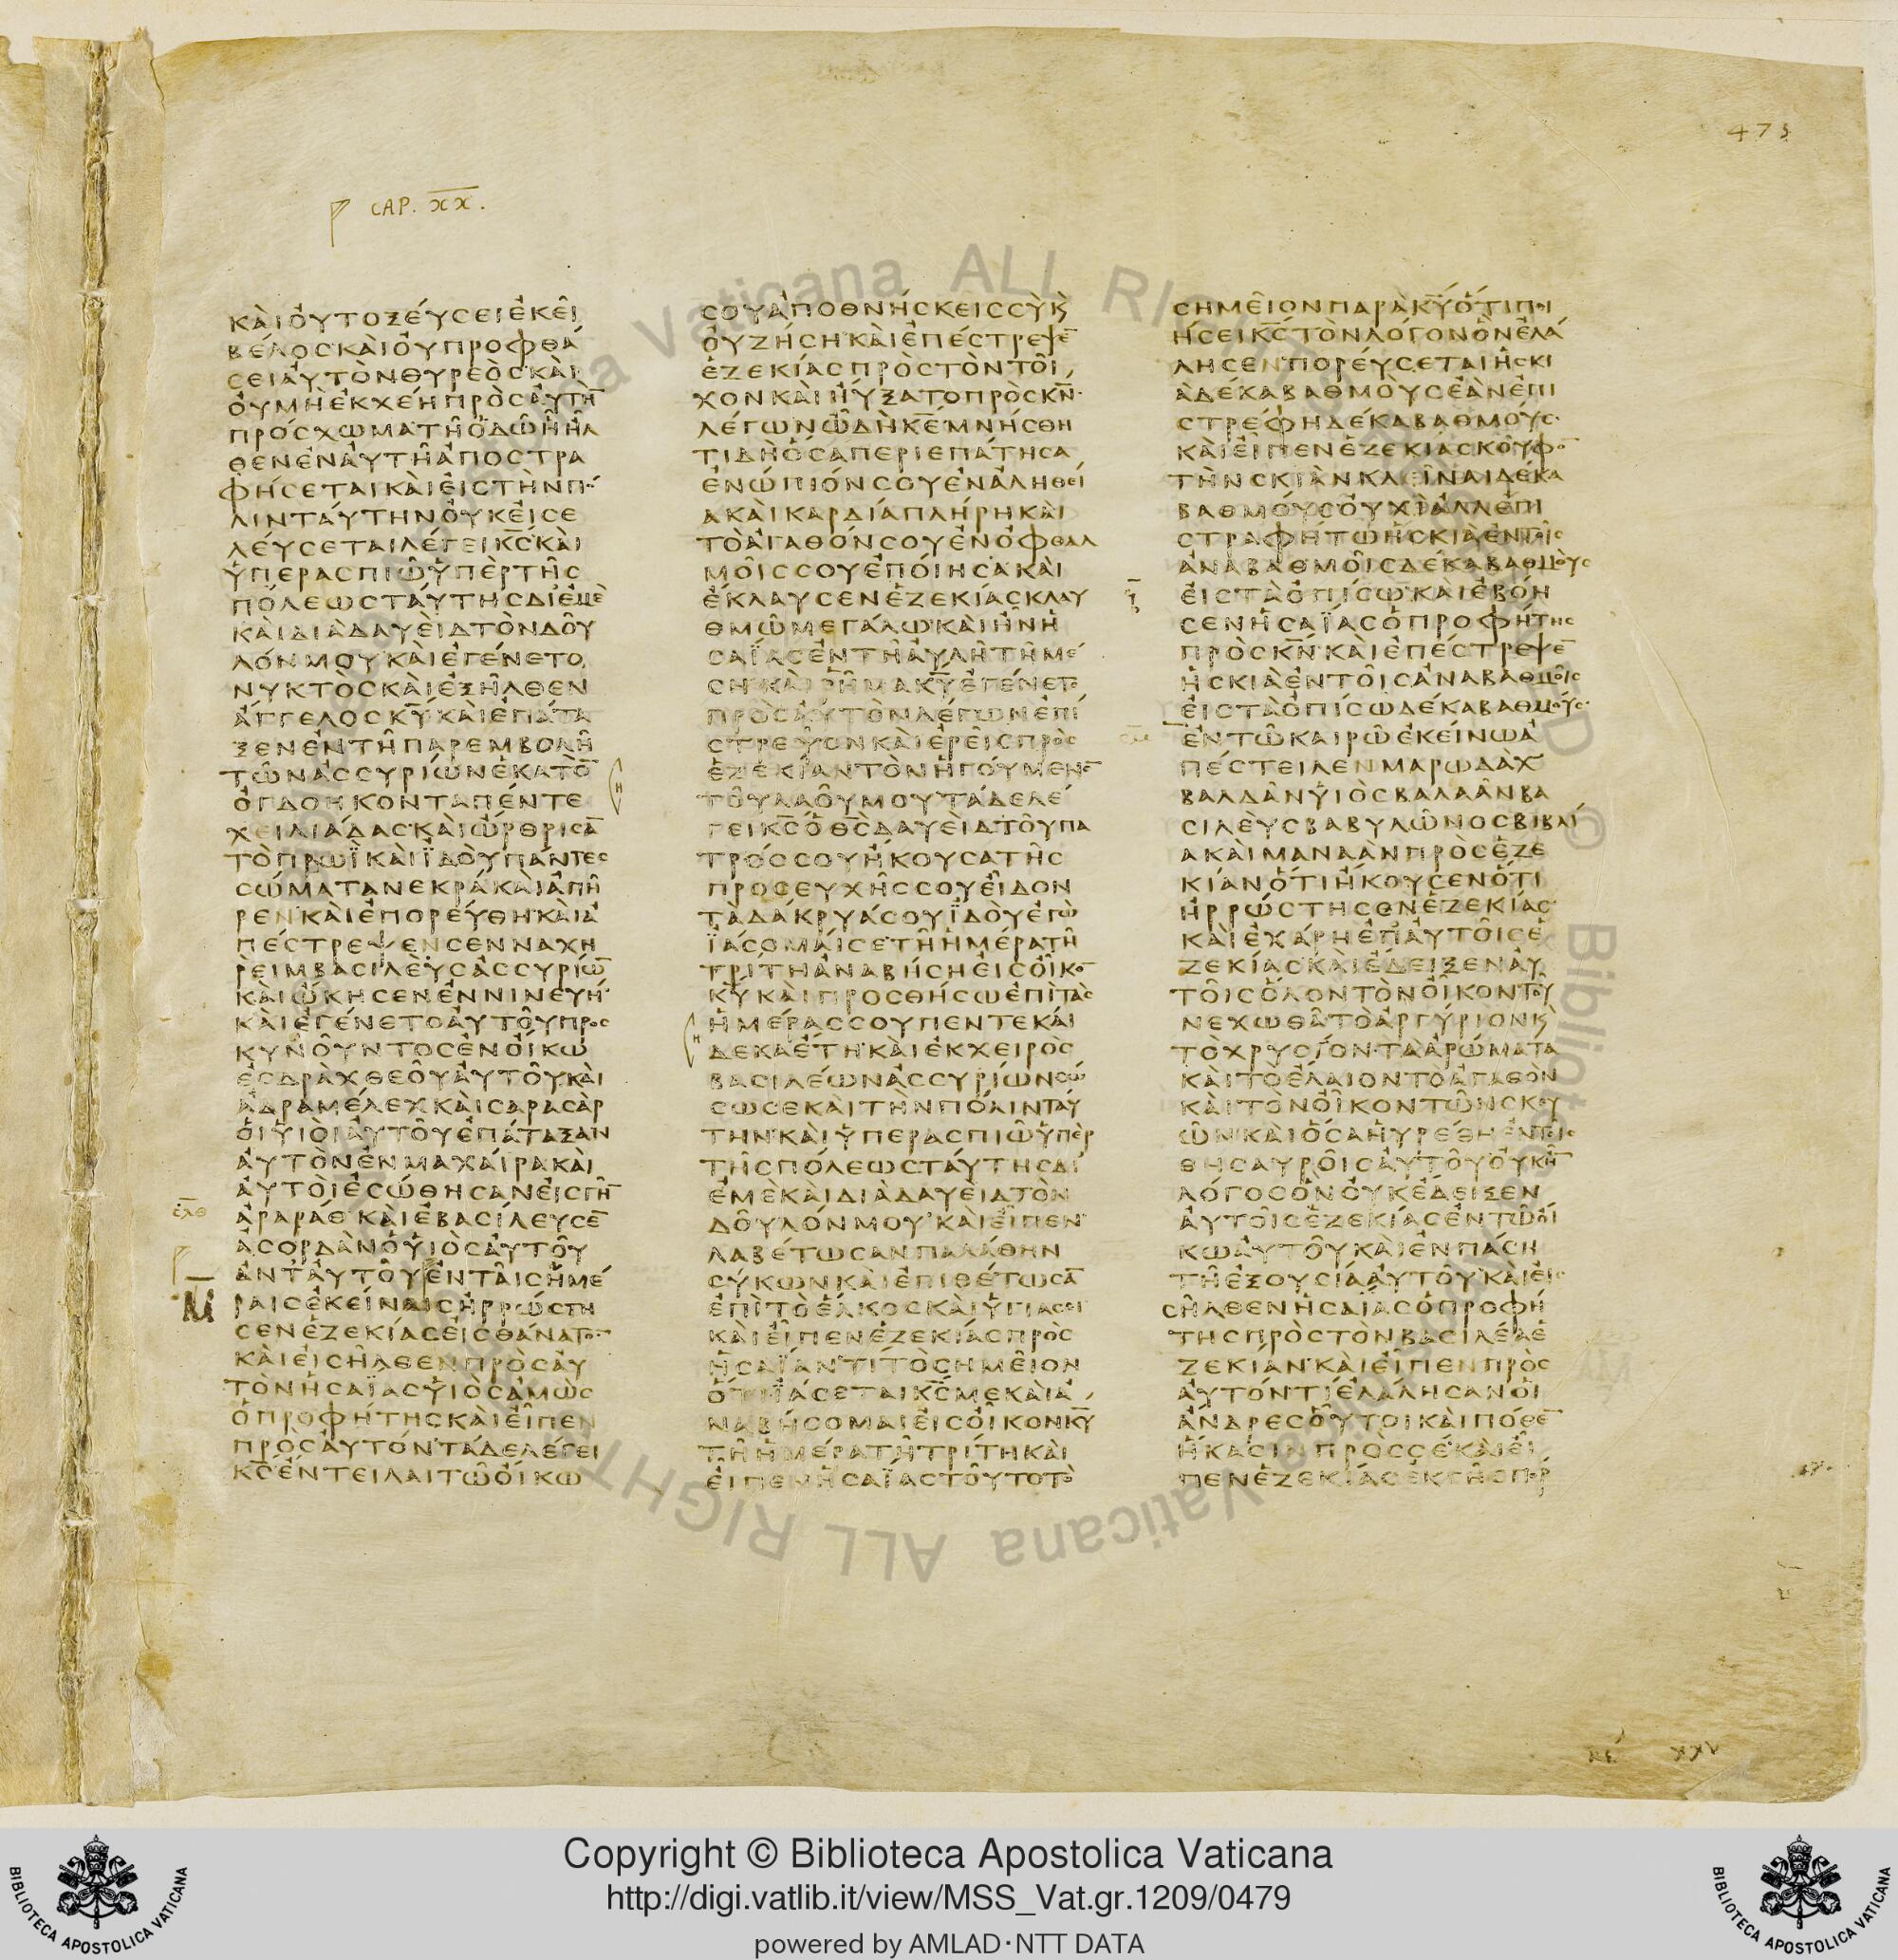 475
CAP. XX.
ΚΑΙΟΥΤΟΞΕΥϹΕΙΕΚΕΙ
ΒΕΛΟϹΚΑΙΟΥΠΡΟΦΘΑ
ϹΕΙΑΥΤΟΝΘΥΡΕΟϹΚΑΙ
ΟΥΜΗΕΚΧΕΗΠΡΟϹΑΥΤΗ̅
ΠΡΟϹΧΩΜΑΤΗΟΔΩΗΗΛ
ΘΕΝΕΝΑΥΤΗΑΠΟϹΤΡΑ
ΦΗϹΕΤΑΙΚΑΙΕΙϹΤΗΝΠΟ
ΛΙΝΤΑΥΤΗΝΟΥΚΕΙϹΕ
ΛΕΥϹΕΤΑΙΛΕΓΕΙΚ̅Ϲ̅ΚΑΙ
ΥΠΕΡΑϹΠΙΩΥΠΕΡΤΗϹ
ΠΟΛΕΩϹΤΑΥΤΗϹΔΙΕΜΕ
ΚΑΙΔΙΑΔΑΥΕΙΔΤΟΝΔΟΥ
ΛΟΝΜΟΥΚΑΙΕΓΕΝΕΤΟ
ΝΥΚΤΟϹΚΑΙΕΞΗΛΘΕΝ
ΑΓΓΕΛΟϹΚ̅Υ̅ΚΑΙΕΠΑΤΑ
ΞΕΝΕΝΤΗΠΑΡΕΜΒΟΛΗ
ΤΩΝΑϹϹΥΡΙΩΝΕΚΑΤΟ̅
ΟΓΔΟΗΚΟΝΤΑΠΕΝΤΕ
ΧΕΙΛΙΑΔΑϹΚΑΙΩΡΘΡΙϹΑ̅
ΤΟΠΡΩΪΚΑΙΪΔΟΥΠΑΝΤΕϹ
ϹΩΜΑΤΑΝΕΚΡΑΚΑΙΑΠΗ
ΡΕΝΚΑΙΕΠΟΡΕΥΘΗΚΑΙΑ
ΠΕϹΤΡΕΨΕΝϹΕΝΝΑΧΗ
ΡΕΙΜΒΑϹΙΛΕΥϹΑϹϹΥΡΙΩ̅
ΚΑΙΩΚΗϹΕΝΕΝΝΙΝΕΥΗ
ΚΑΙΕΓΕΝΕΤΟΑΥΤΟΥΠΡΟϹ
ΚΥΝΟΥΝΤΟϹΕΝΟΙΚΩ
ΕϹΔΡΑΧΘΕΟΥΑΥΤΟΥΚΑΙ
ΑΔΡΑΜΕΛΕΧΚΑΙϹΑΡΑϹΑΡ
ΟΙΥΙΟΙΑΥΤΟΥΕΠΑΤΑΞΑΝ
ΑΥΤΟΝΕΝΜΑΧΑΙΡΑΚΑΙ
ΑΥΤΟΙΕϹΩΘΗϹΑΝΕΙϹΓΗ̅
ΑΡΑΡΑΘΚΑΙΕΒΑϹΙΛΕΥϹΕ̅
ΑϹΟΡΔΑΝΟΥΙΟϹΑΥΤΟΥ
ΑΝΤΑΥΤΟΥΕΝΤΑΙϹΗΜΕ
ΡΑΙϹΕΚΕΙΝΑΙϹΗΡΡΩϹΤΗ
ϹΕΝΕΖΕΚΙΑϹΕΙϹΘΑΝΑΤΟ̅
ΚΑΙΕΙϹΗΛΘΕΝΠΡΟϹΑΥ
ΤΟΝΗϹΑΪΑϹΥΙΟϹΑΜΩϹ
ΟΠΡΟΦΗΤΗϹΚΑΙΕΙΠΕΝ
ΠΡΟϹΑΥΤΟΝΤΑΔΕΛΕΓΕΙ
Κ̅Ϲ̅ΕΝΤΕΙΛΑΙΤΩΟΙΚΩ
ϹΟΥΑΠΟΘΝΗϹΚΕΙϹϹΥΚ
ΟΥΖΗϹΗΚΑΙΕΠΕϹΤΡΕΨΕ̅
ΕΖΕΚΙΑϹΠΡΟϹΤΟΝΤΟΙ
ΧΟΝΚΑΙΗΥΞΑΤΟΠΡΟϹΚ̅Ν̅
ΛΕΓΩΝΩΔΗΚ̅Ε̅ΜΝΗϹΘΗ
ΤΙΔΗΟϹΑΠΕΡΙΕΠΑΤΗϹΑ
ΕΝΩΠΙΟΝϹΟΥΕΝΑΛΗΘΕΙ
ΑΚΑΙΚΑΡΔΙΑΠΛΗΡΗΚΑΙ
ΤΟΑΓΑΘΟΝϹΟΥΕΝΟΦΘΑΛ
ΜΟΙϹϹΟΥΕΠΟΙΗϹΑΚΑΙ
ΕΚΛΑΥϹΕΝΕΖΕΚΙΑϹΚΛΑΥ
ΘΜΩΜΕΓΑΛΩΚΑΙΗΝΗ
ϹΑΪΑϹΕΝΤΗΑΥΛΗΤΗΜΕ
ϹΗΚΑΙΡΗΜΑΚ̅Υ̅ΕΓΕΝΕΤΟ
ΠΡΟϹΑΥΤΟΝΛΕΓΩΝΕΠΙ
ϹΤΡΕΨΟΝΚΑΙΕΡΕΙϹΠΡΟϹ
ΕΖΕΚΙΑΝΤΟΝΗΓΟΥΜΕΝΟ̅
ΤΟΥΛΑΟΥΜΟΥΤΑΔΕΛΕ
ΓΕΙΚ̅Ϲ̅ΟΘ̅Ϲ̅ΔΑΥΕΙΔΤΟΥΠΑ
ΤΡΟϹϹΟΥΗΚΟΥϹΑΤΗϹ
ΠΡΟϹΕΥΧΗϹϹΟΥΕΙΔΟΝ
ΤΑΔΑΚΡΥΑϹΟΥΪΔΟΥΕΓΩ
ΪΑϹΟΜΑΙϹΕΤΗΗΜΕΡΑΤΗ
ΤΡΙΤΗΑΝΑΒΗϹΗΕΙϹΟΙΚΟ̅
Κ̅Υ̅ΚΑΙΠΡΟϹΘΗϹΩΕΠΙΤΑϹ
ΗΜΕΡΑϹϹΟΥΠΕΝΤΕΚΑΙ
ΔΕΚΑΕΤΗΚΑΙΕΚΧΕΙΡΟϹ
ΒΑϹΙΛΕΩΝΑϹϹΥΡΙΩΝϹΩ
ϹΩϹΕΚΑΙΤΗΝΠΟΛΙΝΤΑΥ
ΤΗΝΚΑΙΥΠΕΡΑϹΠΙΩΥΠΕΡ
ΤΗϹΠΟΛΕΩϹΤΑΥΤΗϹΔΙ
ΕΜΕΚΑΙΔΙΑΔΑΥΕΙΔΤΟΝ
ΔΟΥΛΟΝΜΟΥΚΑΙΕΙΠΕΝ
ΛΑΒΕΤΩϹΑΝΠΑΛΑΘΗΝ
ϹΥΚΩΝΚΑΙΕΠΙΘΕΤΩϹΑ̅
ΕΠΙΤΟΕΛΚΟϹΚΑΙΥΓΙΑϹΕΙ
ΚΑΙΕΙΠΕΝΕΖΕΚΙΑϹΠΡΟϹ
ΗϹΑΪΑΝΤΙΤΟϹΗΜΕΙΟΝ
ΟΤΙΪΑϹΕΤΑΙΚ̅Ϲ̅ΜΕΚΑΙΑ
ΝΑΒΗϹΟΜΑΙΕΙϹΟΙΚΟΝΚ̅Υ̅
ΤΗΗΜΕΡΑΤΗΤΡΙΤΗΚΑΙ
ΕΙΠΕΝΗϹΑΪΑϹΤΟΥΤΟΤΟ
ϹΗΜΕΙΟΝΠΑΡΑΚ̅Υ̅ΟΤΙΠΟΙ
ΗϹΕΙΚ̅Ϲ̅ΤΟΝΛΟΓΟΝΟΝΕΛΑ
ΛΗϹΕΝΠΟΡΕΥϹΕΤΑΙΗϹΚΙ
ΑΔΕΚΑΒΑΘΜΟΥϹΕΑΝΕΠΙ
ϹΤΡΕΦΗΔΕΚΑΒΑΘΜΟΥϹ
ΚΑΙΕΙΠΕΝΕΖΕΚΙΑϹΚΟΥΦΟ̅
ΤΗΝϹΚΙΑΝΚΛΕΙΝΑΙΔΕΚΑ
ΒΑΘΜΟΥϹΟΥΧΙΑΛΛΕΠΙ
ϹΤΡΑΦΗΤΩΗϹΚΙΑΕΝΤΟΙϹ
ΑΝΑΒΑΘΜΟΙϹΔΕΚΑΒΑΘΜΟΥϹ
ΕΙϹΤΑΟΠΙϹΩΚΑΙΕΒΟΗ
ϹΕΝΗϹΑΪΑϹΟΠΡΟΦΗΤΗϹ
ΠΡΟϹΚ̅Ν̅ΚΑΙΕΠΕϹΤΡΕΨΕ̅
ΗϹΚΙΑΕΝΤΟΙϹΑΝΑΒΑΘΜΟΙϹ
ΕΙϹΤΑΟΠΙϹΩΔΕΚΑΒΑΘΜΟΥϹ
ΕΝΤΩΚΑΙΡΩΕΚΕΙΝΩΑ
ΠΕϹΤΕΙΛΕΝΜΑΡΩΔΑΧ
ΒΑΛΔΑΝΥΙΟϹΒΑΛΑΑΝΒΑ
ϹΙΛΕΥϹΒΑΒΥΛΩΝΟϹΒΙΒΛΙ
ΑΚΑΙΜΑΝΑΑΝΠΡΟϹΕΖΕ
ΚΙΑΝΟΤΙΗΚΟΥϹΕΝΟΤΙ
ΗΡΡΩϹΤΗϹΕΝΕΖΕΚΙΑϹ
ΚΑΙΕΧΑΡΗΕΠΑΥΤΟΙϹΕ
ΖΕΚΙΑϹΚΑΙΕΔΕΙΞΕΝΑΥ
ΤΟΙϹΟΛΟΝΤΟΝΟΙΚΟΝΤΟΥ
ΝΕΧΩΘΑΤΟΑΡΓΥΡΙΟΝΚ
ΤΟΧΡΥϹΙΟΝΤΑΑΡΩΜΑΤΑ
ΚΑΙΤΟΕΛΑΙΟΝΤΟΑΓΑΘΟΝ
ΚΑΙΤΟΝΟΙΚΟΝΤΩΝϹΚΕΥ
ΩΝΚΑΙΟϹΑΗΥΡΕΘΗΕΝΤΟΙϹ
ΘΗϹΑΥΡΟΙϹΑΥΤΟΥΟΥΚΗ̅
ΛΟΓΟϹΟΝΟΥΚΕΔΕΙΞΕΝ
ΑΥΤΟΙϹΕΖΕΚΙΑϹΕΝΤΩΟΙ
ΚΩΑΥΤΟΥΚΑΙΕΝΠΑϹΗ
ΤΗΕΞΟΥϹΙΑΑΥΤΟΥΚΑΙΕΙϹ
ϹΗΛΘΕΝΗϹΑΪΑϹΟΠΡΟΦΗ
ΤΗϹΠΡΟϹΤΟΝΒΑϹΙΛΕΑΕ
ΖΕΚΙΑΝΚΑΙΕΙΠΕΝΠΡΟϹ
ΑΥΤΟΝΤΙΕΛΑΛΗϹΑΝΟΙ
ΑΝΔΡΕϹΟΥΤΟΙΚΑΙΠΟΘΕ̅
ΗΚΑϹΙΝΠΡΟϹϹΕΚΑΙΕΙ
ΠΕΝΕΖΕΚΙΑϹΕΚΓΗϹΠΟΡ
Copyright © Biblioteca Apostolica Vaticana
http://digi.vatlib.it/view/MSS_Vat.gr.1209/0479
powered by AMLAD・NTT DATA
BIBLIOTECA APOSTOLICA VATICANA
BIBLIOTECA APOSTOLICA VATICANA